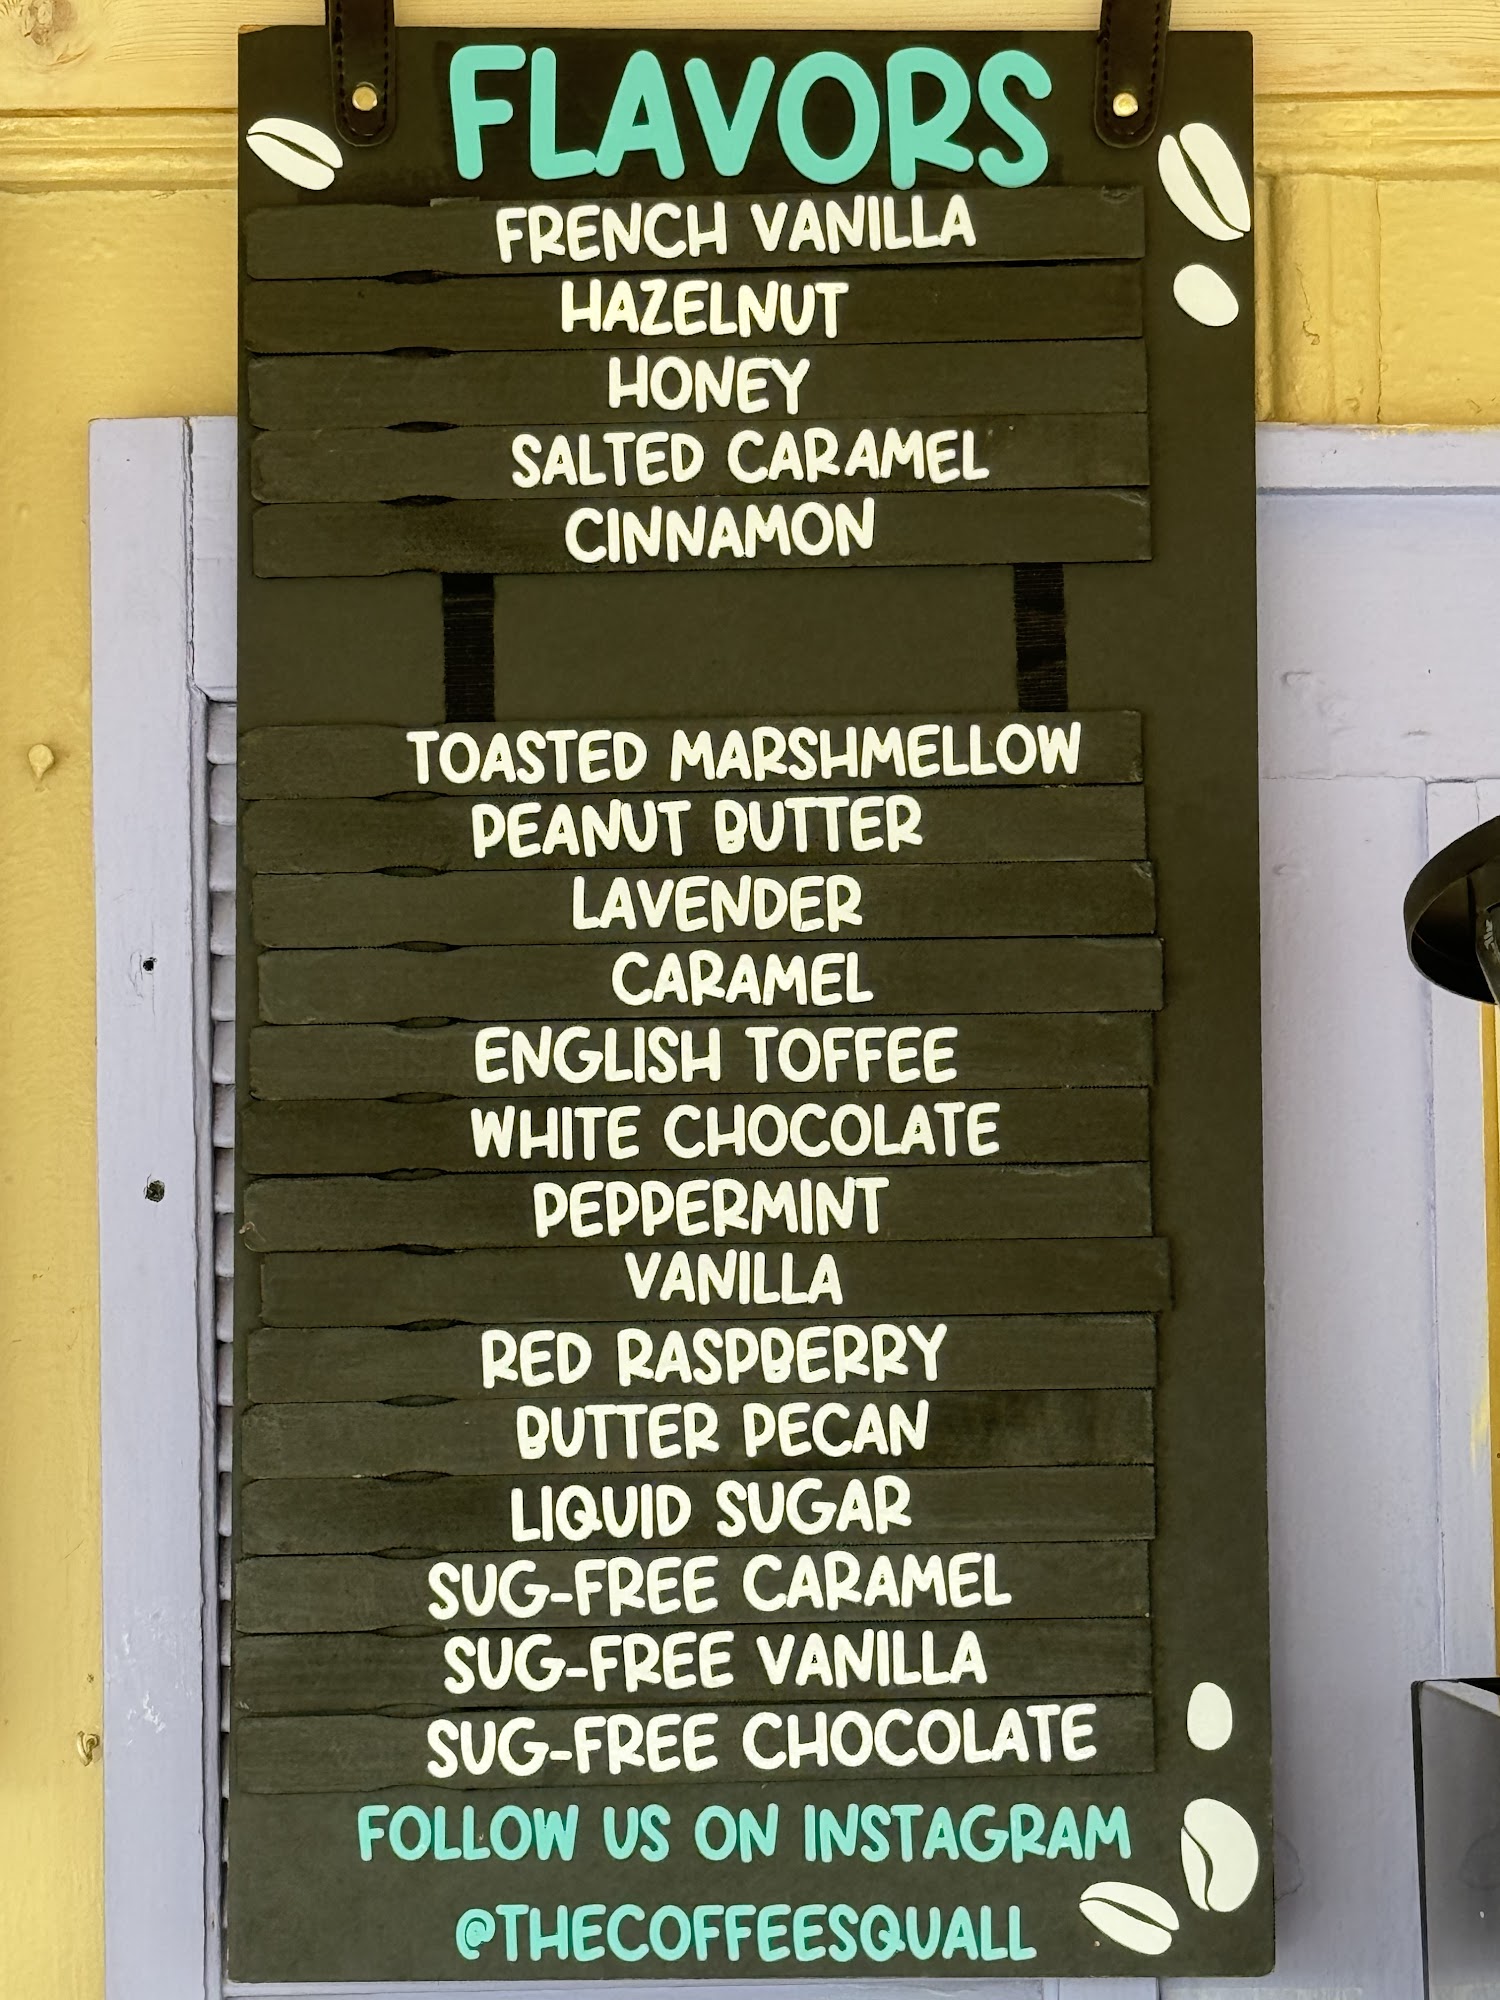 FLAVORS
FRENCH VANILLA
HAZELNUT
HONEY
SALTED CARAMEL
CINNAMON
TOASTED MARSHMELLOW
PEANUT BUTTER
LAVENDER
CARAMEL
ENGLISH TOFFEE
WHITE CHOCOLATE
PEPPERMINT
VANILLA
RED RASPBERRY
BUTTER PECAN
LIQUID SUGAR
SUG-FREE CARAMEL
SUG-FREE VANILLA
SUG-FREE CHOCOLATE
FOLLOW US ON INSTAGRAM
@THECOFFEESQUALL